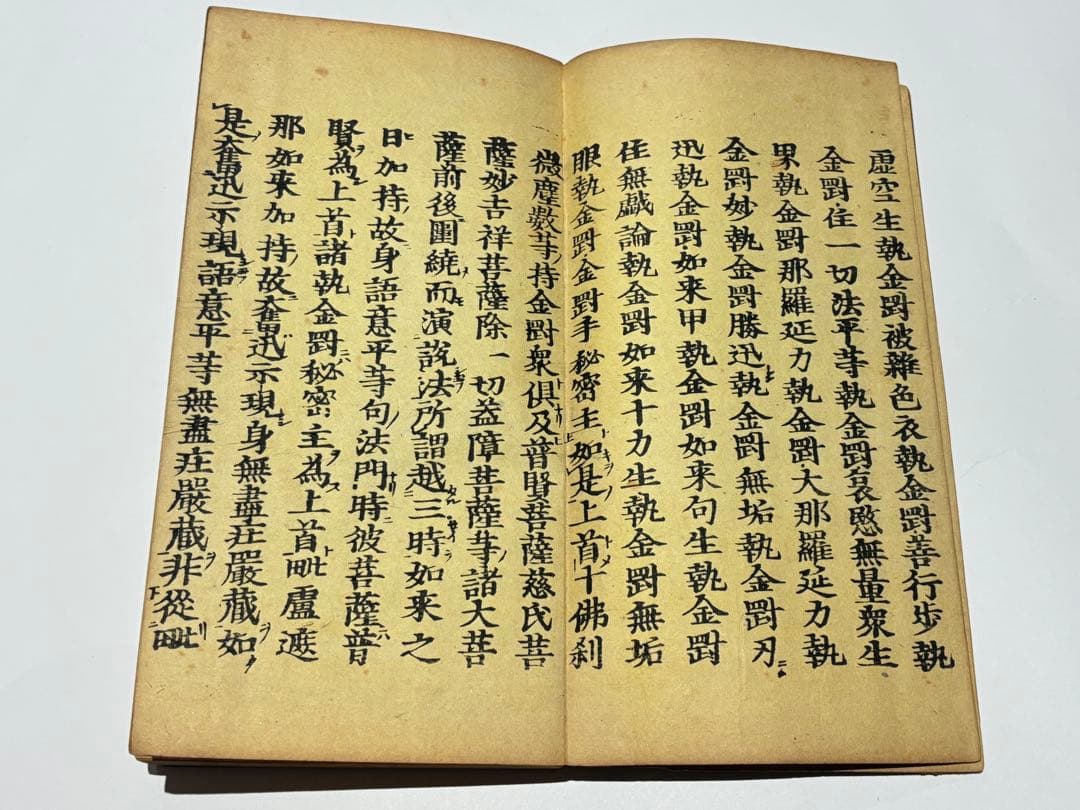 虚空生執金剛被雜色衣執金剛善行步執
金剛住一切法平等執金剛哀愍無量衆生
界執金剛那羅延力執金剛大那羅延力執
金剛妙執金剛勝迅執金剛無垢執金剛刃
迅執金剛如來甲執金剛如來句生執金剛
住無戯論執金剛如來十力生執金剛無垢
眼執金剛金剛手秘密主如是上首十佛刹
微塵數等持金剛衆俱及普賢菩薩慈氏菩
薩妙吉祥菩薩除一切盖障菩薩等諸大菩
薩前後圍繞而演說法所謂越三時如來之
日加持故身語意平等句法門時彼菩薩普
賢為上首諸執金剛秘密主為上首毗盧遮
那如來加持故奮迅示現身無盡莊嚴藏如
是奮迅示現語意平等無盡莊嚴藏非從毗